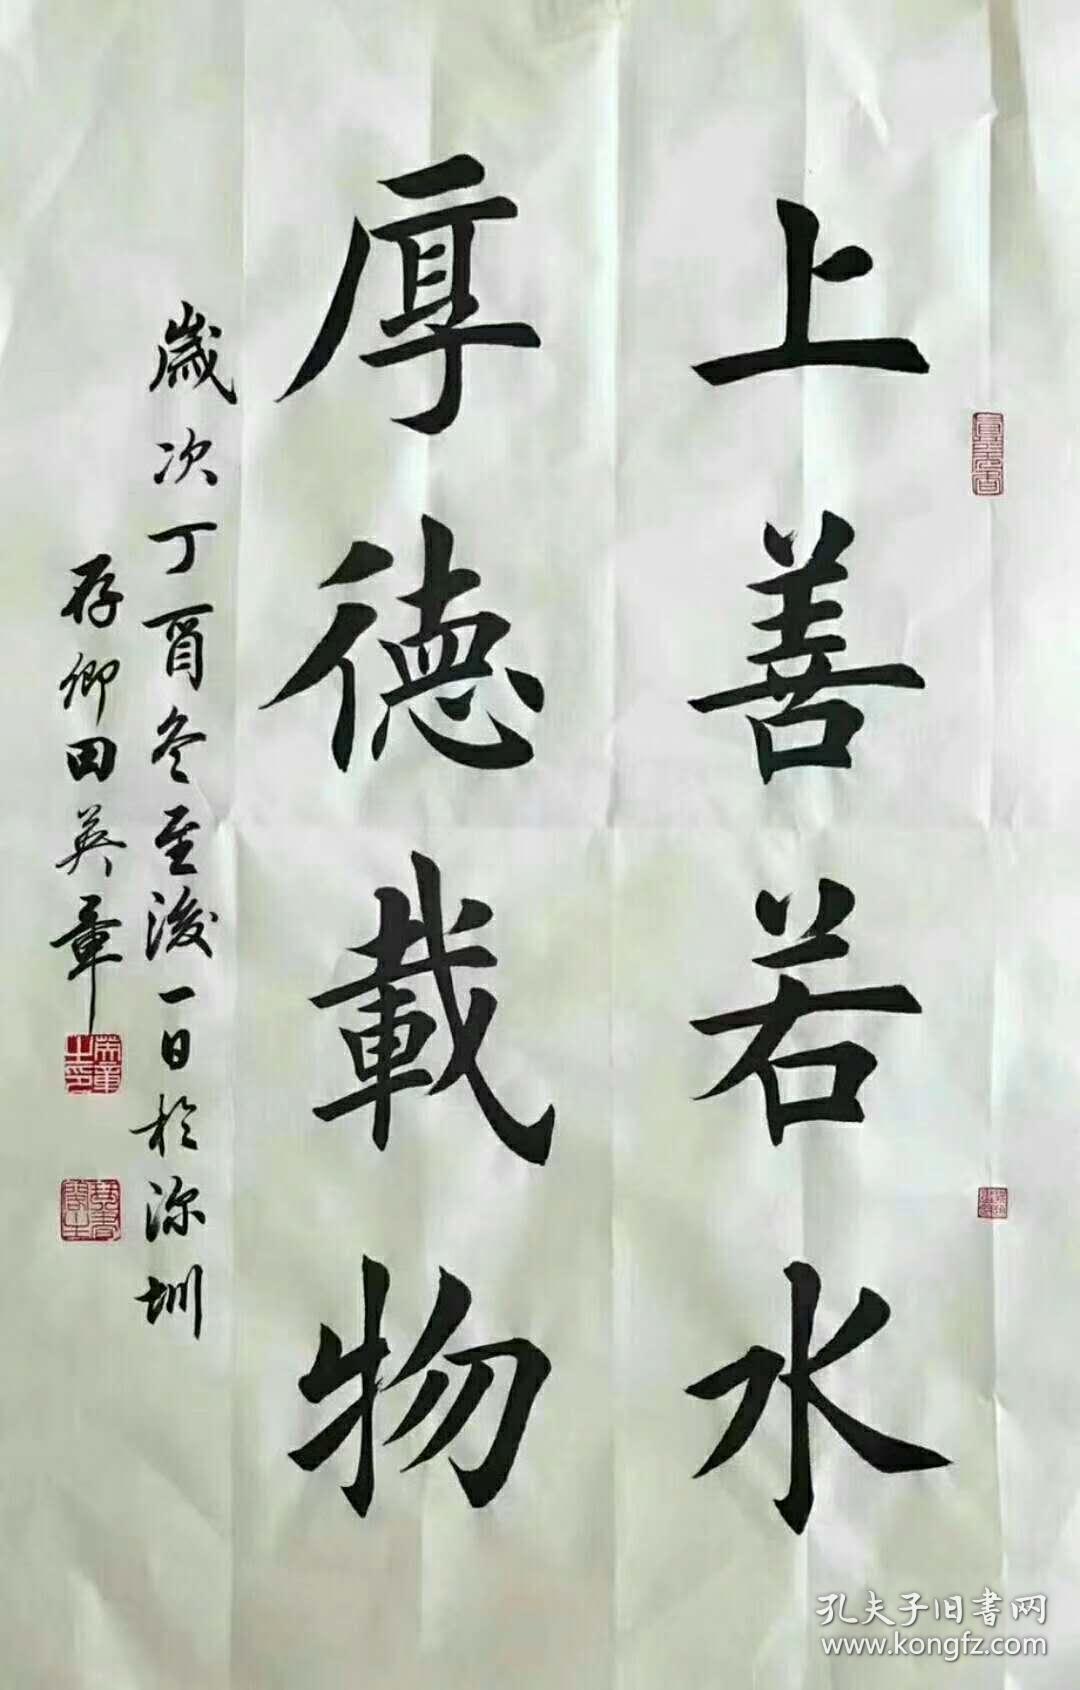 上善若水
厚德載物
歲次丁酉冬至後一日於深圳
存卿田英章
孔夫子旧書网
www.kongfz.com